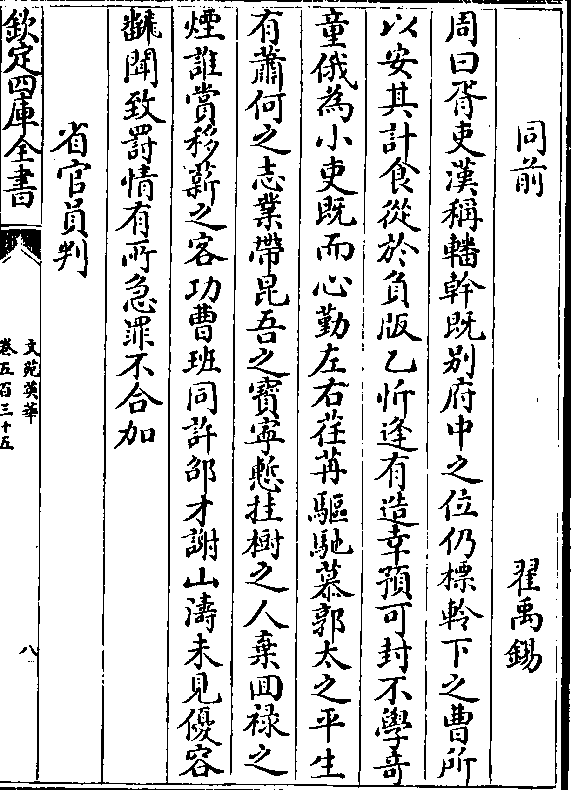 同前　翟禹錫
周曰胥吏漢稱轓幹既別府中之位仍標軨下之曹所
以安其計食從於負版乙忻逢有造幸預可封不學奇
童俄為小吏既而心勤左右荏苒驅馳慕郭太之平生
有蕭何之志業帶昆吾之寳寧慙挂樹之人棄囬禄之
煙誰賞移薪之客功曹班同許邵才謝山濤未見優容
翻聞致罰情有所急罪不合加
省官員判
欽定四庫全書
文苑英華
卷五百三十五
八